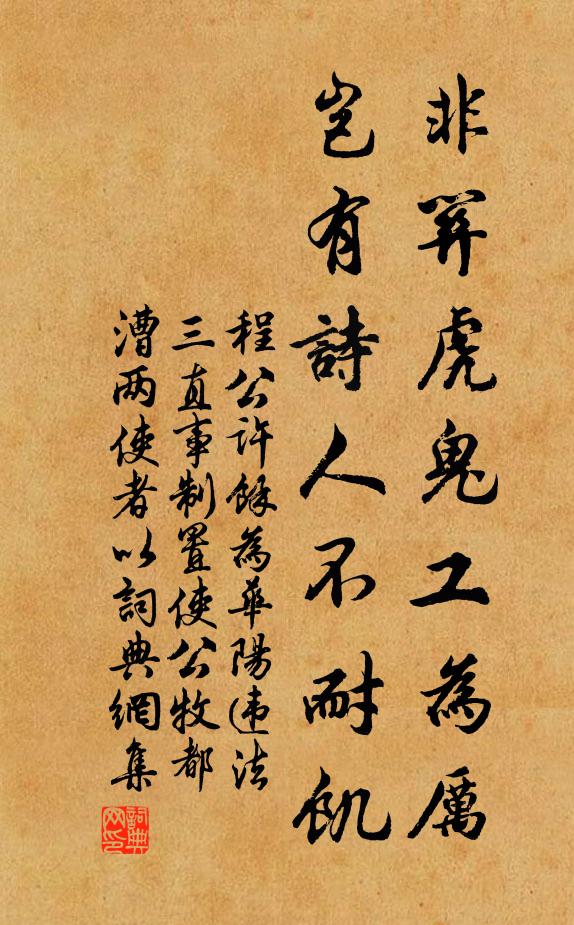 非關虎鬼工為厲
豈有詩人不耐飢
程公許餘為華陽違法
三直事制置使公牧都
漕两使者以詞典網集
詞典网印